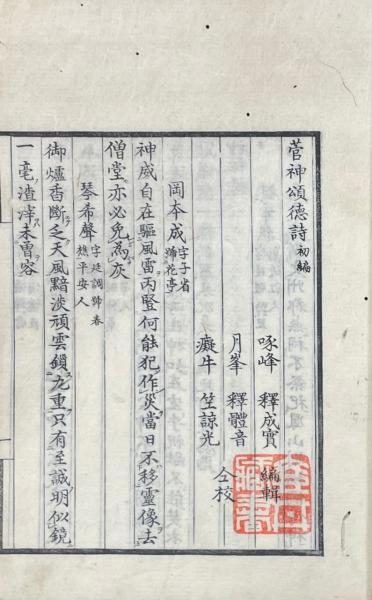 菅神頌德詩初編
啄峰 釋成實 編輯
月峯 釋體音
癡牛 笠諒光 仝校
岡本成字子省號花亭
神威自在驅風雷丙豎何能犯作災當日不移靈像去
僧堂亦必免為灰
琴希聲字廷調號春樵平安人
御爐香斷乏天風黯淡頑雲鎖九重只有至誠明似鏡
一毫渣滓未曾容